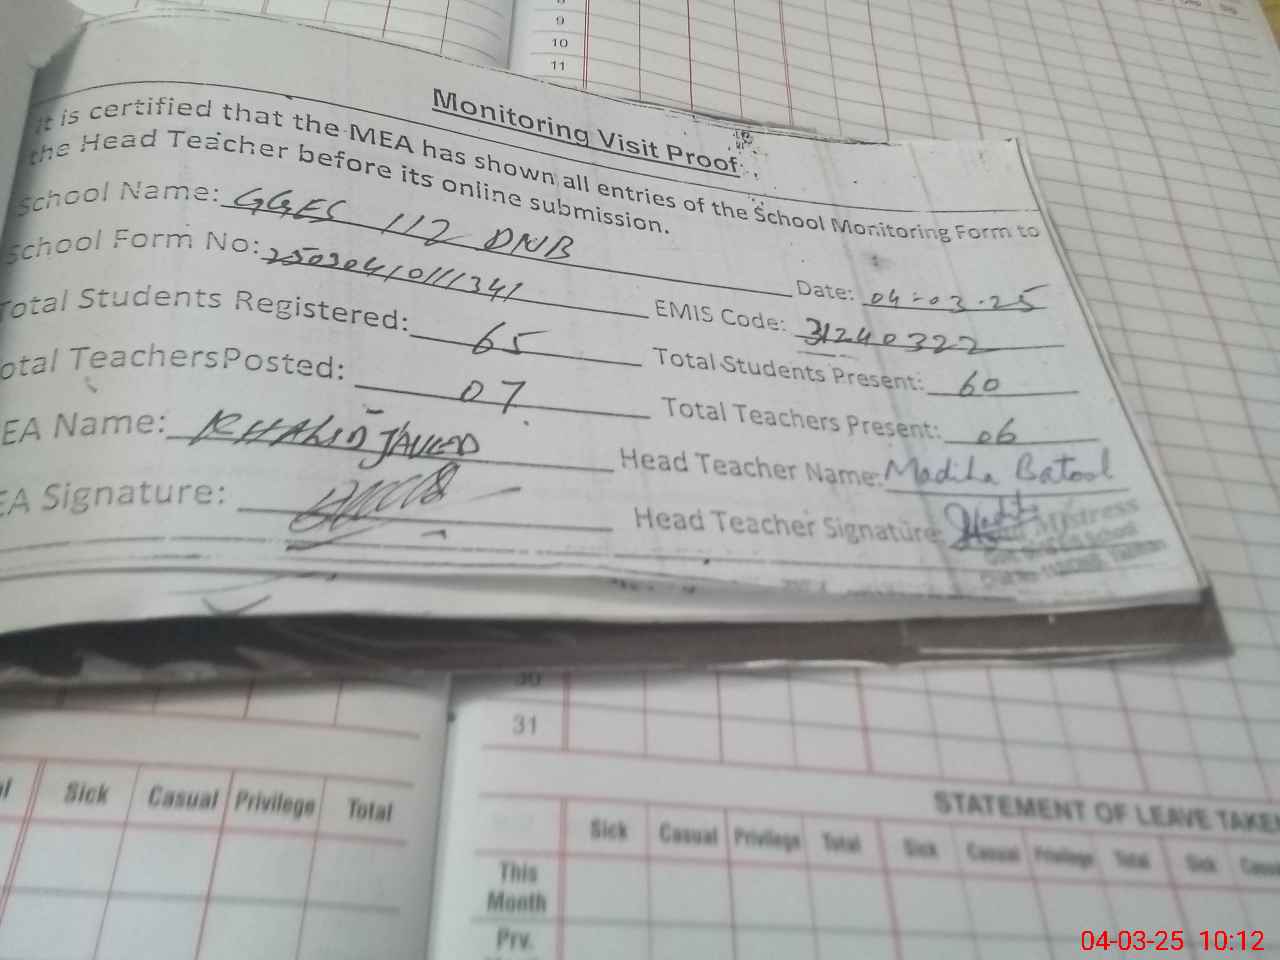 9
10
11
Monitoring Visit Proof
It is certified that the MEA has shown all entries of the School Monitoring Form to
the Head Teacher before its online submission.
School Name: GGES 112 DNB
Date: 04-03-25
School Form No: 2503041011341
EMIS Code: 31240322
Total Students Registered: 65
Total Students Present: 60
Total TeachersPosted: 07
Total Teachers Present: 06
EA Name: KHALID JAVED
Head Teacher Name: Madiha Batool
EA Signature:
Head Teacher Signature:
Mistress
School
30
31
Sick Casual Privilege Total
STATEMENT OF LEAVE TAKE
Sick Casual Privilege Total Sick Casual Privilege Total Sick
This
Month
Prv.
04-03-25 10:12